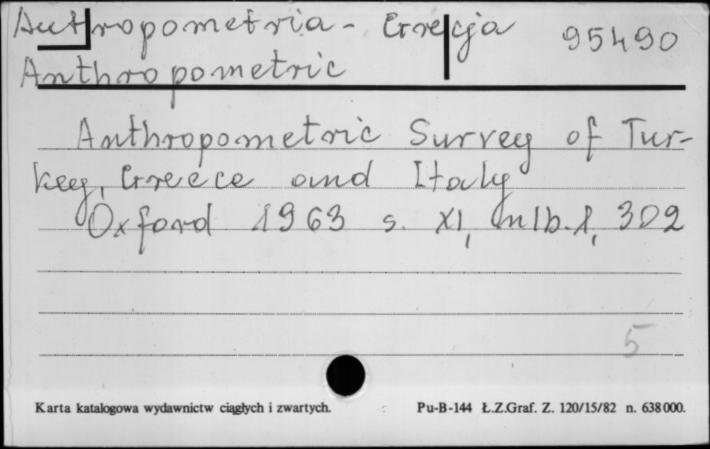 Anthropometria - Grecja 95490
Anthropometric
Anthropometric Survey of Tur-
key, Greece and Italy
Oxford 1963 s. XI, nlb. 1, 302
5
Karta katalogowa wydawnictw ciągłych i zwartych. Pu-B-144 Ł.Z.Graf. Z. 120/15/82 n. 638000.